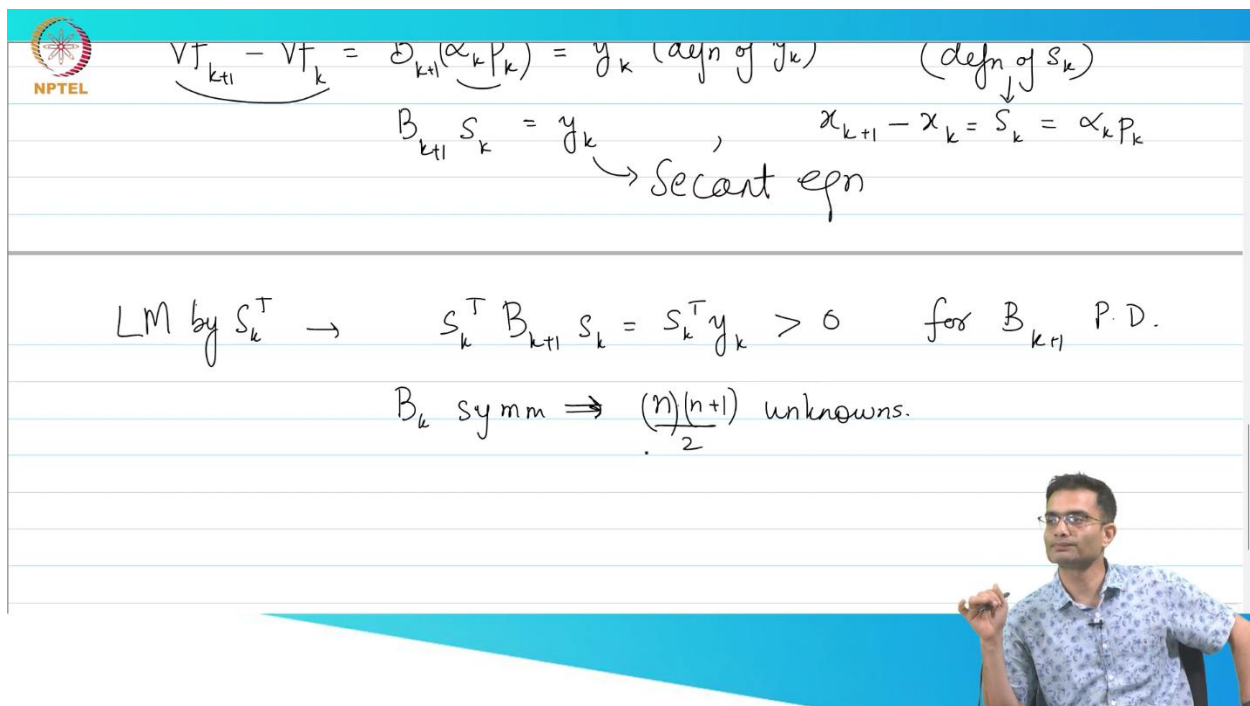 NPTEL
∇f_{k+1} − ∇f_k = B_{k+1}(α_k p_k) = y_k (defn of y_k) (defn of s_k)
B_{k+1} s_k = y_k , x_{k+1} − x_k = s_k = α_k p_k
→ Secant eqn
LM by s_k^T → s_k^T B_{k+1} s_k = s_k^T y_k > 0 for B_{k+1} P.D.
B_k symm ⇒ (n)(n+1)/2 unknowns.